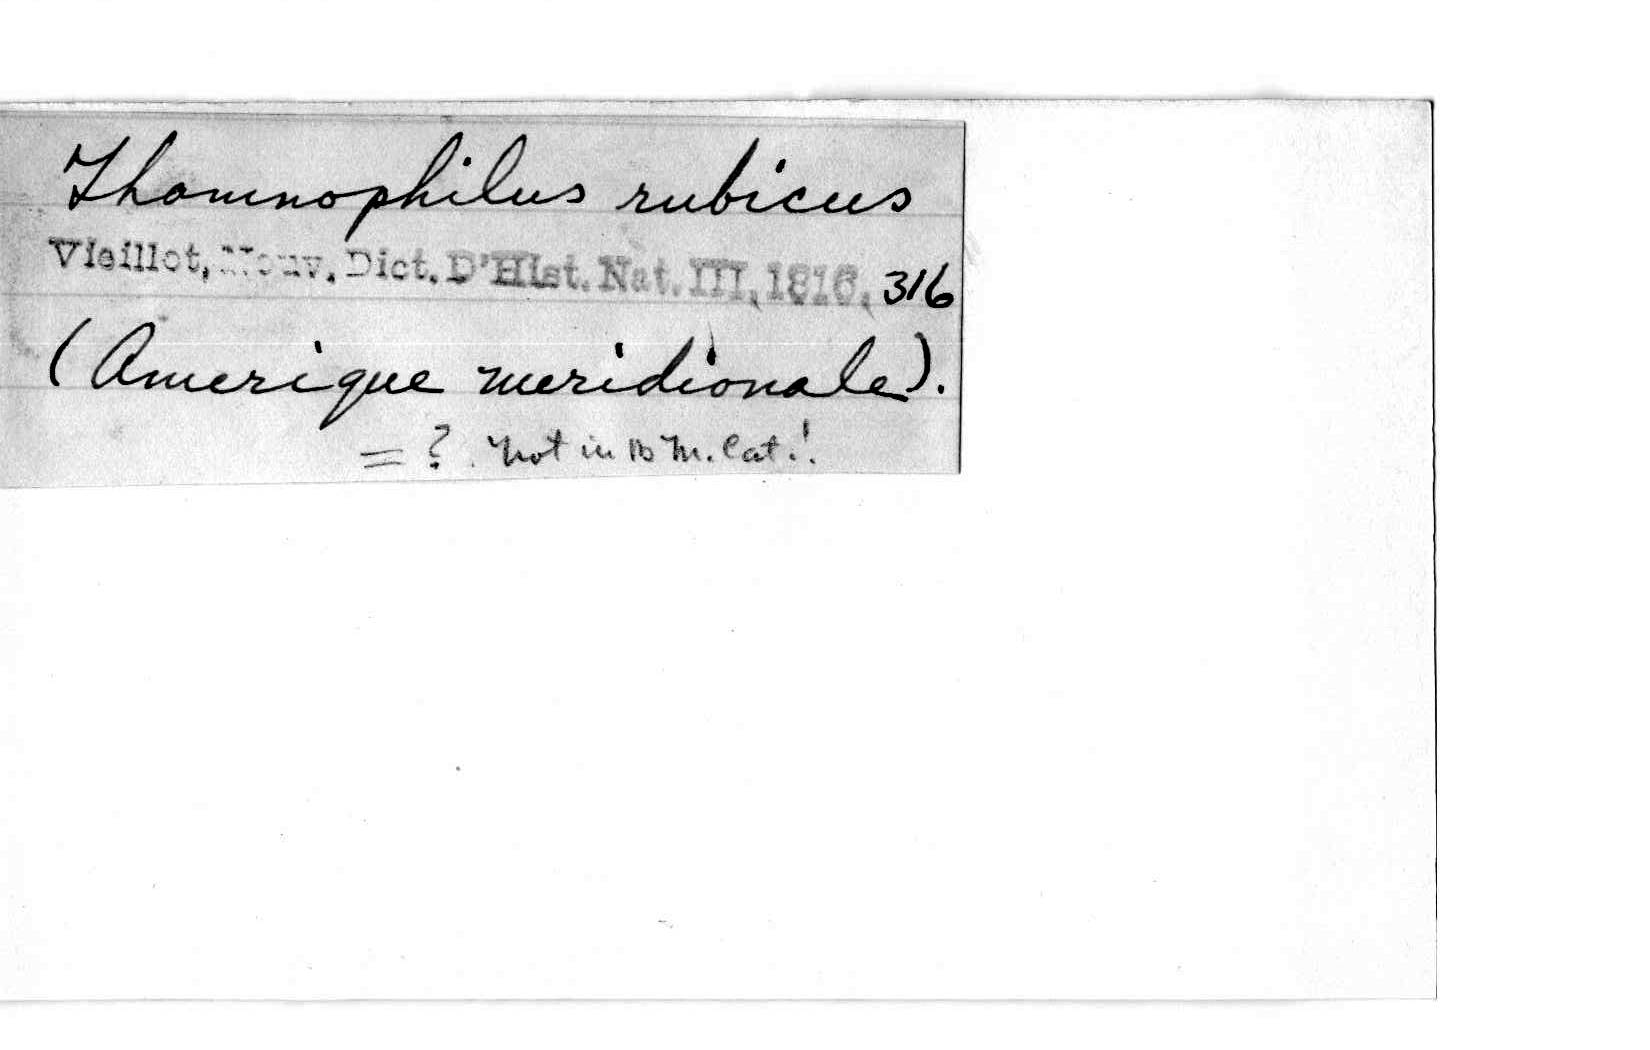 Thamnophilus rubicus
Vieillot, Nouv. Dict. D'Hist. Nat. III, 1816, 316
(Amerique meridionale).
= ? Not in B M. Cat.!